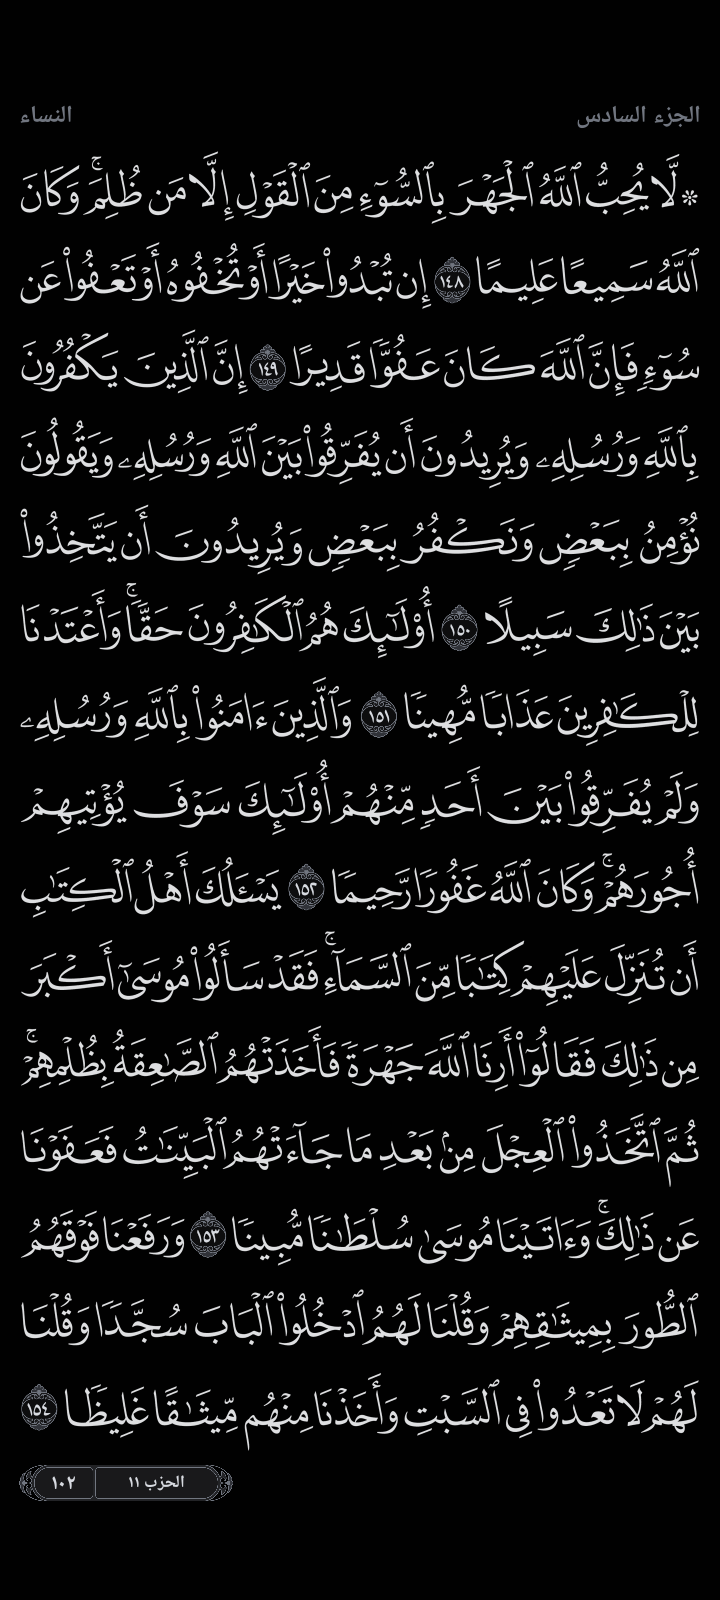 الجزء السادس
النساء
۞ لَّا يُحِبُّ ٱللَّهُ ٱلْجَهْرَ بِٱلسُّوٓءِ مِنَ ٱلْقَوْلِ إِلَّا مَن ظُلِمَ ۚ وَكَانَ
ٱللَّهُ سَمِيعًا عَلِيمًا ١٤٨ إِن تُبْدُوا۟ خَيْرًا أَوْ تُخْفُوهُ أَوْ تَعْفُوا۟ عَن
سُوٓءٍ فَإِنَّ ٱللَّهَ كَانَ عَفُوًّا قَدِيرًا ١٤٩ إِنَّ ٱلَّذِينَ يَكْفُرُونَ
بِٱللَّهِ وَرُسُلِهِۦ وَيُرِيدُونَ أَن يُفَرِّقُوا۟ بَيْنَ ٱللَّهِ وَرُسُلِهِۦ وَيَقُولُونَ
نُؤْمِنُ بِبَعْضٍ وَنَكْفُرُ بِبَعْضٍ وَيُرِيدُونَ أَن يَتَّخِذُوا۟
بَيْنَ ذَٰلِكَ سَبِيلًا ١٥٠ أُو۟لَٰٓئِكَ هُمُ ٱلْكَٰفِرُونَ حَقًّا ۚ وَأَعْتَدْنَا
لِلْكَٰفِرِينَ عَذَابًا مُّهِينًا ١٥١ وَٱلَّذِينَ ءَامَنُوا۟ بِٱللَّهِ وَرُسُلِهِۦ
وَلَمْ يُفَرِّقُوا۟ بَيْنَ أَحَدٍ مِّنْهُمْ أُو۟لَٰٓئِكَ سَوْفَ يُؤْتِيهِمْ
أُجُورَهُمْ ۚ وَكَانَ ٱللَّهُ غَفُورًا رَّحِيمًا ١٥٢ يَسْـَٔلُكَ أَهْلُ ٱلْكِتَٰبِ
أَن تُنَزِّلَ عَلَيْهِمْ كِتَٰبًا مِّنَ ٱلسَّمَآءِ ۚ فَقَدْ سَأَلُوا۟ مُوسَىٰٓ أَكْبَرَ
مِن ذَٰلِكَ فَقَالُوٓا۟ أَرِنَا ٱللَّهَ جَهْرَةً فَأَخَذَتْهُمُ ٱلصَّٰعِقَةُ بِظُلْمِهِمْ ۚ
ثُمَّ ٱتَّخَذُوا۟ ٱلْعِجْلَ مِنۢ بَعْدِ مَا جَآءَتْهُمُ ٱلْبَيِّنَٰتُ فَعَفَوْنَا
عَن ذَٰلِكَ ۚ وَءَاتَيْنَا مُوسَىٰ سُلْطَٰنًا مُّبِينًا ١٥٣ وَرَفَعْنَا فَوْقَهُمُ
ٱلطُّورَ بِمِيثَٰقِهِمْ وَقُلْنَا لَهُمُ ٱدْخُلُوا۟ ٱلْبَابَ سُجَّدًا وَقُلْنَا
لَهُمْ لَا تَعْدُوا۟ فِى ٱلسَّبْتِ وَأَخَذْنَا مِنْهُم مِّيثَٰقًا غَلِيظًا ١٥٤
الحزب ١١
١٠٢